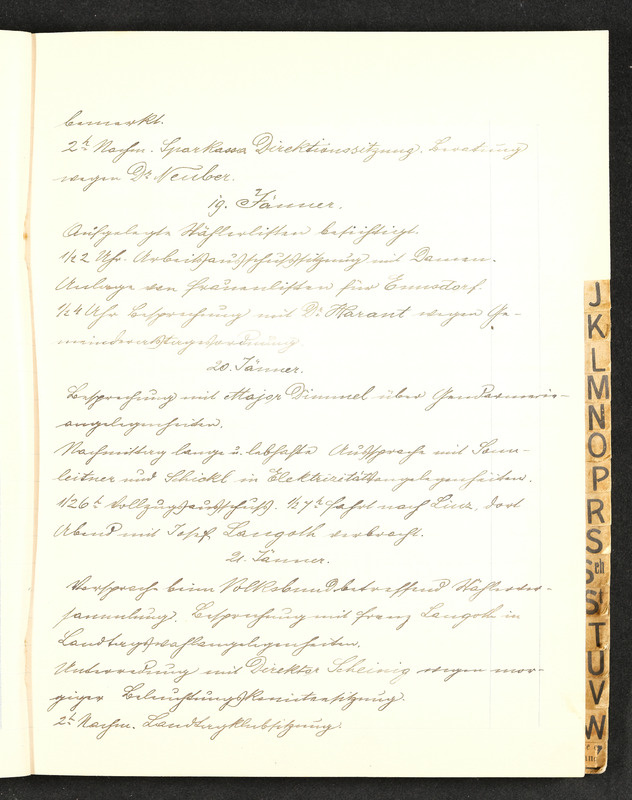 bemerkt.
2h Nachm. Sparkassa Direktionssitzung. Beratung
wegen Dr Neuber.
19. Jänner.
Aufgelegte Wählerlisten besichtigt.
1/2 2 Uhr. Arbeitsausschußsitzung mit Damen.
Anlage von Frauenlisten für Ennsdorf.
1/2 4 Uhr Besprechung mit Dr Harant wegen Ge-
meinderatstagesordnung
20. Jänner.
Besprechung mit Major Dimmel über Gendarmerie-
angelegenheiten.
Nachmittag lange u. lebhafte Aussprache mit Sonn-
leitner und Schickl in Elektrizitätsangelegenheiten.
1/2 6h Vollzugsausschuß. 1/2 7h Fahrt nach Linz, dort
Abend mit Josef Langoth verbracht.
21. Jänner.
Vorsprache beim Volksbund betreffend Wählerver-
sammlung. Besprechung mit Franz Langoth in
Landtagswahlangelegenheiten.
Unterredung mit Direktor Scheinig wegen mor-
giger Beleuchtungskomiteesitzung.
2h Nachm. Landtagklubsitzung.
J
K
L
M
N
O
P
R
S
Sch
St
T
U
V
W